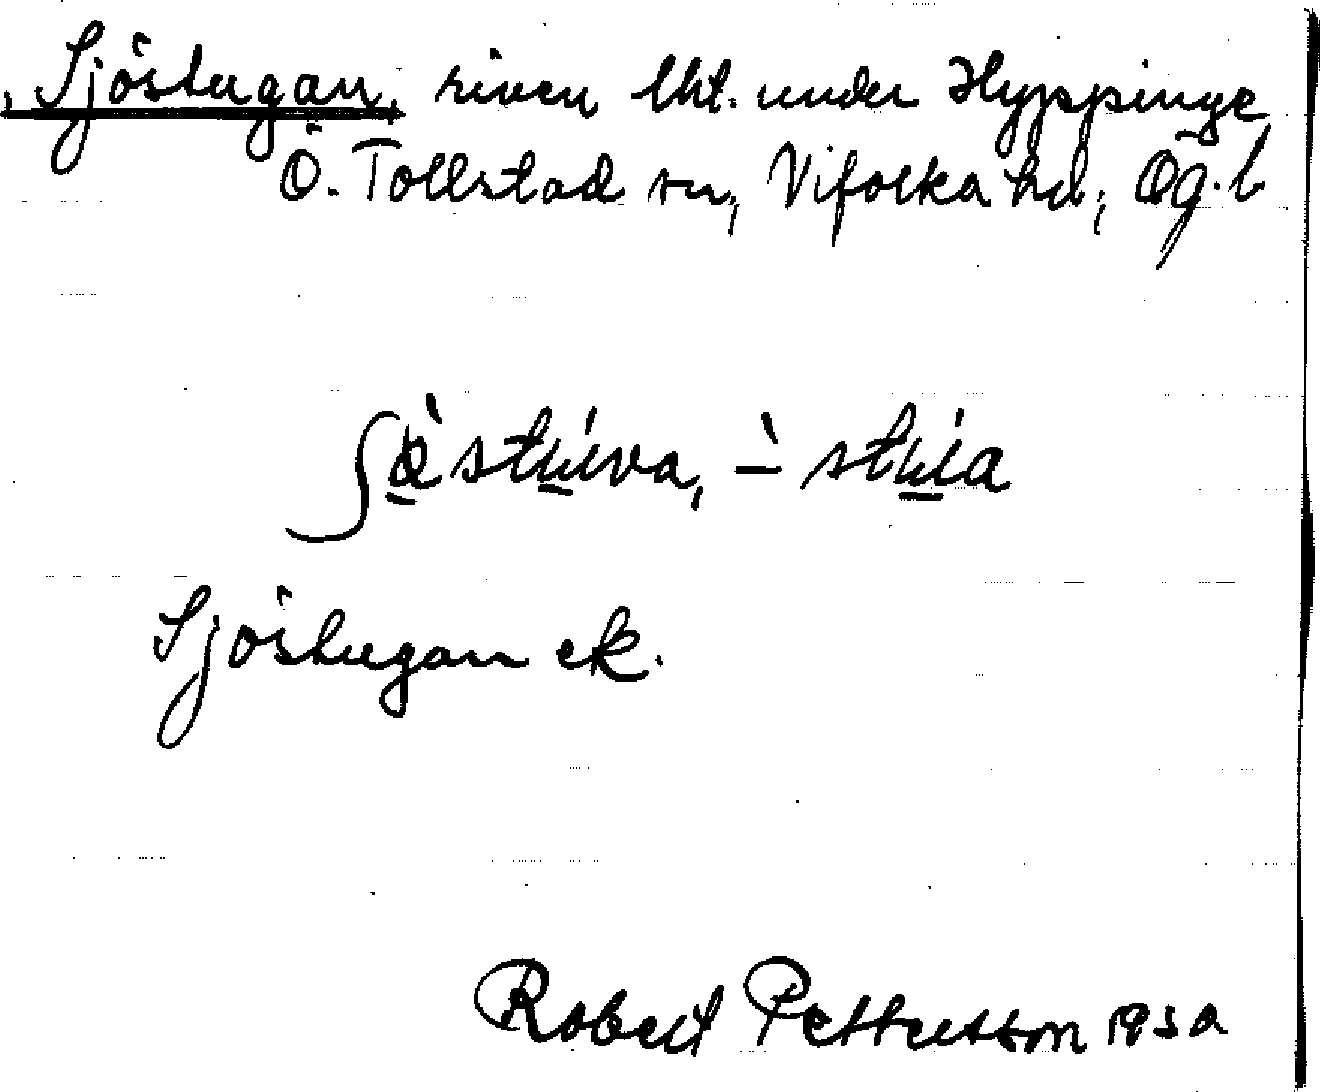 Sjöstugan, riven lht. under Hyppinge
Ö. Tollstad sn, Vifolka hd, Ög. l
Sjöstugan ek.
Robert Pettersson